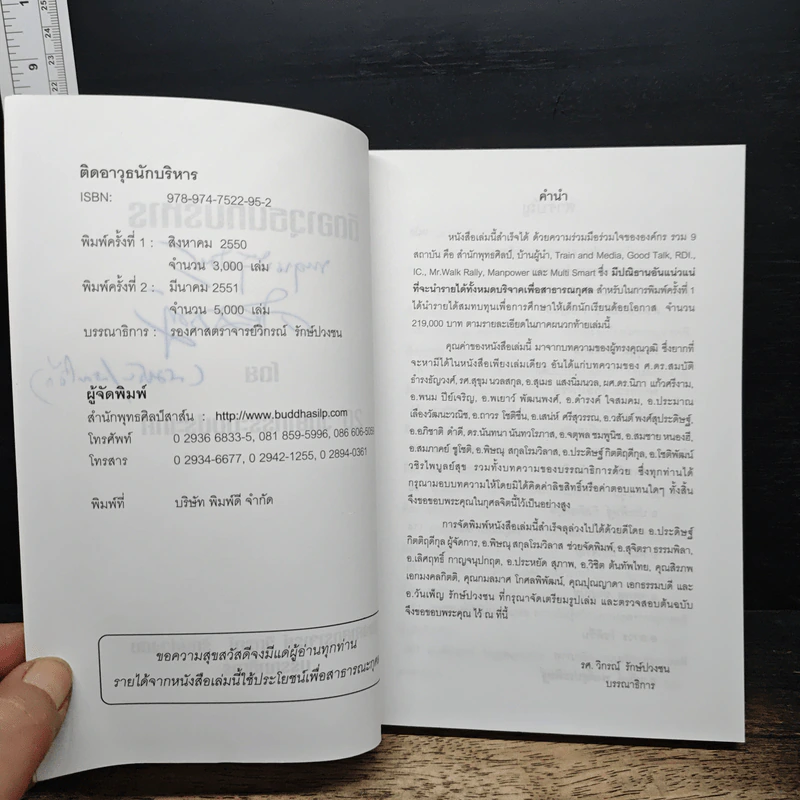 ติดอาวุธนักบริหาร
ISBN: 978-974-7522-95-2
พิมพ์ครั้งที่ 1 : สิงหาคม 2550
จำนวน 3,000 เล่ม
พิมพ์ครั้งที่ 2 : มีนาคม 2551
จำนวน 5,000 เล่ม
บรรณาธิการ : รองศาสตราจารย์วิกรณ์ รักษ์ปวงชน
ผู้จัดพิมพ์
สำนักพุทธศิลป์สาส์น : http://www.buddhasilp.com
โทรศัพท์ 0 2936 6833-5, 081 859-5996, 086 606-5059
โทรสาร 0 2934-6677, 0 2942-1255, 0 2894-0361
พิมพ์ที่ บริษัท พิมพ์ดี จำกัด
ขอความสุขสวัสดีจงมีแด่ผู้อ่านทุกท่าน
รายได้จากหนังสือเล่มนี้ใช้ประโยชน์เพื่อสาธารณะกุศล
คำนำ
หนังสือเล่มนี้สำเร็จได้ ด้วยความร่วมมือร่วมใจขององค์กร รวม 9
สถาบัน คือ สำนักพุทธศิลป์, บ้านผู้นำ, Train and Media, Good Talk, RDI.,
IC., Mr.Walk Rally, Manpower และ Multi Smart ซึ่ง มีปณิธานอันแน่วแน่
ที่จะนำรายได้ทั้งหมดบริจาคเพื่อสาธารณกุศล สำหรับในการพิมพ์ครั้งที่ 1
ได้นำรายได้สมทบทุนเพื่อการศึกษาให้เด็กนักเรียนด้อยโอกาส จำนวน
219,000 บาท ตามรายละเอียดในภาคผนวกท้ายเล่มนี้
คุณค่าของหนังสือเล่มนี้ มาจากบทความของผู้ทรงคุณวุฒิ ซึ่งยากที่
จะหามีได้ในหนังสือเพียงเล่มเดียว อันได้แก่บทความของ ศ.ดร.สมบัติ
ธำรงธัญวงศ์, รศ.สุขุม นวลสกุล, อ.สุเมธ แสงนิ่มนวล, ผศ.ดร.นิภา แก้วศรีงาม,
อ.พนม ปีย์เจริญ, อ.พเยาว์ พัฒนพงศ์, อ.ดำรงค์ ใจสมคม, อ.ประมาณ
เลืองวัฒนะวณิช, อ.ถาวร โชติชื่น, อ.เสน่ห์ ศรีสุวรรณ, อ.วสันต์ พงศ์สุประดิษฐ์,
อ.อภิชาติ ดำดี, ดร.นันทนา นันทวโรภาส, อ.จตุพล ชมพูนิช, อ.สมชาย หนองฮี,
อ.สมภาคย์ ชูโชติ, อ.พิษณุ สกุลโรมวิลาส, อ.ประดิษฐ์ กิตติฤดีกุล, อ.โชติพัฒน์
วชิรไพบูลย์สุข รวมทั้งบทความของบรรณาธิการด้วย ซึ่งทุกท่านได้
กรุณามอบบทความให้โดยมิได้คิดค่าลิขสิทธิ์หรือค่าตอบแทนใดๆ ทั้งสิ้น
จึงขอขอบพระคุณในกุศลจิตนี้ไว้เป็นอย่างสูง
การจัดพิมพ์หนังสือเล่มนี้สำเร็จลุล่วงไปได้ด้วยดีโดย อ.ประดิษฐ์
กิตติฤดีกุล ผู้จัดการ, อ.พิษณุ สกุลโรมวิลาส ช่วยจัดพิมพ์, อ.สุจิตรา ธรรมพิลา,
อ.เลิศฤทธิ์ กาญจนุปกฤต, อ.ประหยัด สุภาพ, อ.วิชิต ตันทัพไทย, คุณสิรภพ
เอกมงคลกิตติ, คุณกมลมาศ โกศลพิพัฒน์, คุณปุณญาดา เอกธรรมบดี และ
อ.วันเพ็ญ รักษ์ปวงชน ที่กรุณาจัดเตรียมรูปเล่ม และตรวจสอบต้นฉบับ
จึงขอขอบพระคุณ ไว้ ณ ที่นี้
รศ. วิกรณ์ รักษ์ปวงชน
บรรณาธิการ